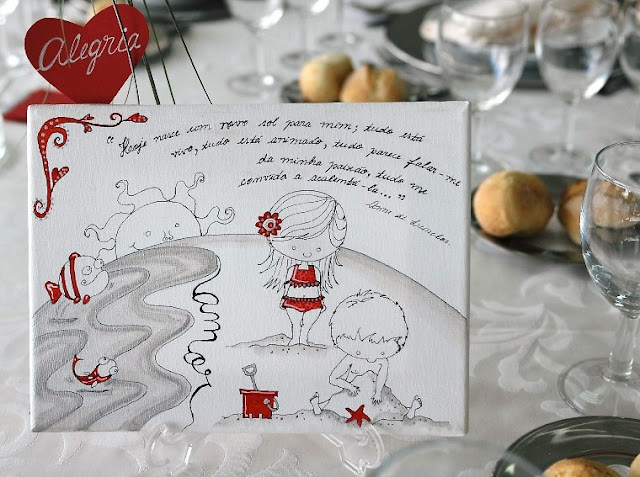 Alegria
"Hoje nasce um novo sol para mim; tudo está
vivo, tudo está animado, tudo parece falar-me
da minha paixão, tudo me
convida a acalentá-la... "
amor